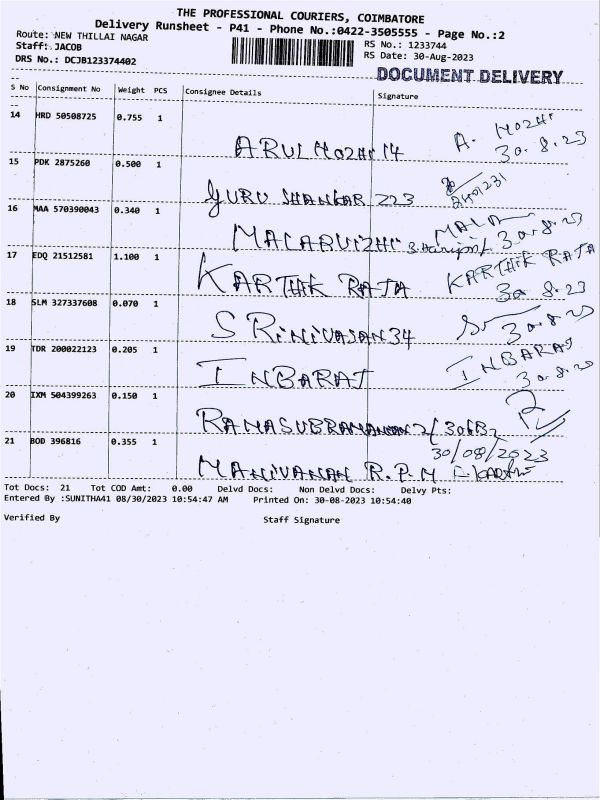 THE PROFESSIONAL COURIERS, COIMBATORE
Delivery Runsheet - P41 - Phone No.:0422-3505555 - Page No.:2
Route: NEW THILLAI NAGAR
RS No.: 1233744
Staff: JACOB
RS Date: 30-Aug-2023
DRS No.: DCJB123374402
DOCUMENT DELIVERY
S No Consignment No Weight PCS Consignee Details Signature
14 HRD 50508725 0.755 1
ARUL MOZHI 14 A. MOZHI
30.8.23
15 PDK 2875260 0.500 1
GURU SHANKAR 223
16 MAA 570390043 0.340 1
MALARVIZHI MALA
30.8.23
17 EDQ 21512581 1.100 1
KARTHIK RAJA KARTHIK RAJA
30 8.23
18 SLM 327337608 0.070 1
SRINIVASAN 34 30.8.23
19 TDR 200022123 0.205 1
INBARAJ INBARAJ
30.8.23
20 IXM 504399263 0.150 1
RAMASUBRAMANIAN
30/08/2023
21 BOD 396816 0.355 1
MANIVANAN R.P.M
Tot Docs: 21 Tot COD Amt: 0.00 Delvd Docs: Non Delvd Docs: Delvy Pts:
Entered By :SUNITHA41 08/30/2023 10:54:47 AM Printed On: 30-08-2023 10:54:40
Verified By Staff Signature